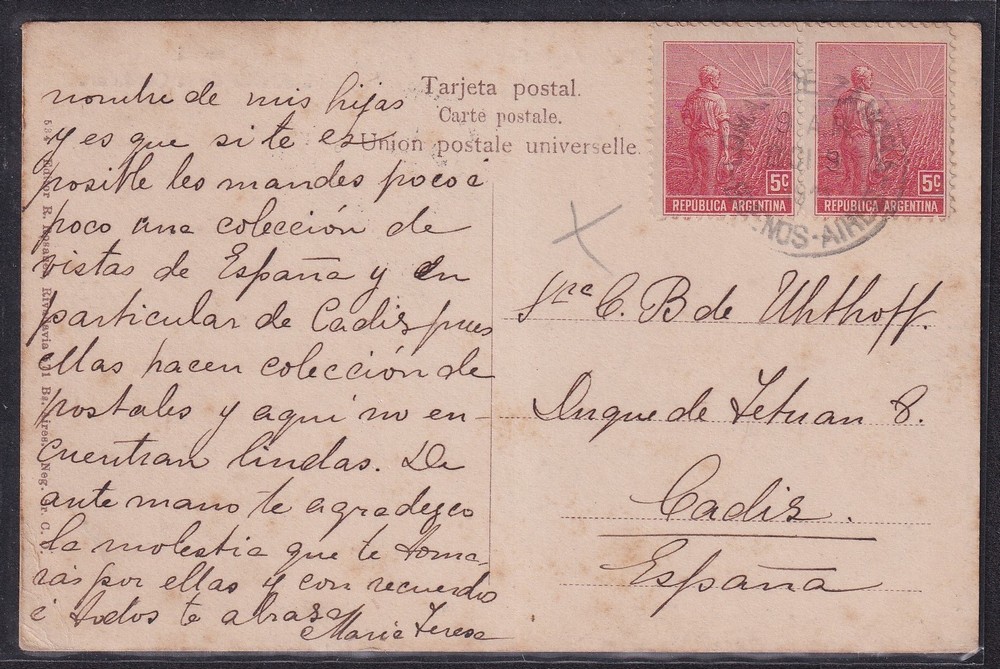 Tarjeta postal.
Carte postale.
Union postale universelle.
nombre de mis hijas
y es que si te es
posible les mandes poco á
poco una colección de
vistas de España y en
particular de Cadiz, pues
ellas hacen colección de
postales y aquí no en-
cuentran lindas. De
ante mano te agradezco
la molestia que te toma-
rás por ellas y con recuerdos
á todos te abraza
Maria Teresa
5c
REPÚBLICA ARGENTINA
5c
REPÚBLICA ARGENTINA
BUENOS-AIRES
Sra C. B de Uhthoff.
Duque de Tetuan 8.
Cadiz.
España
Editor R. Rosauer, Rivadavia 571 Bs. Aires. Neg.